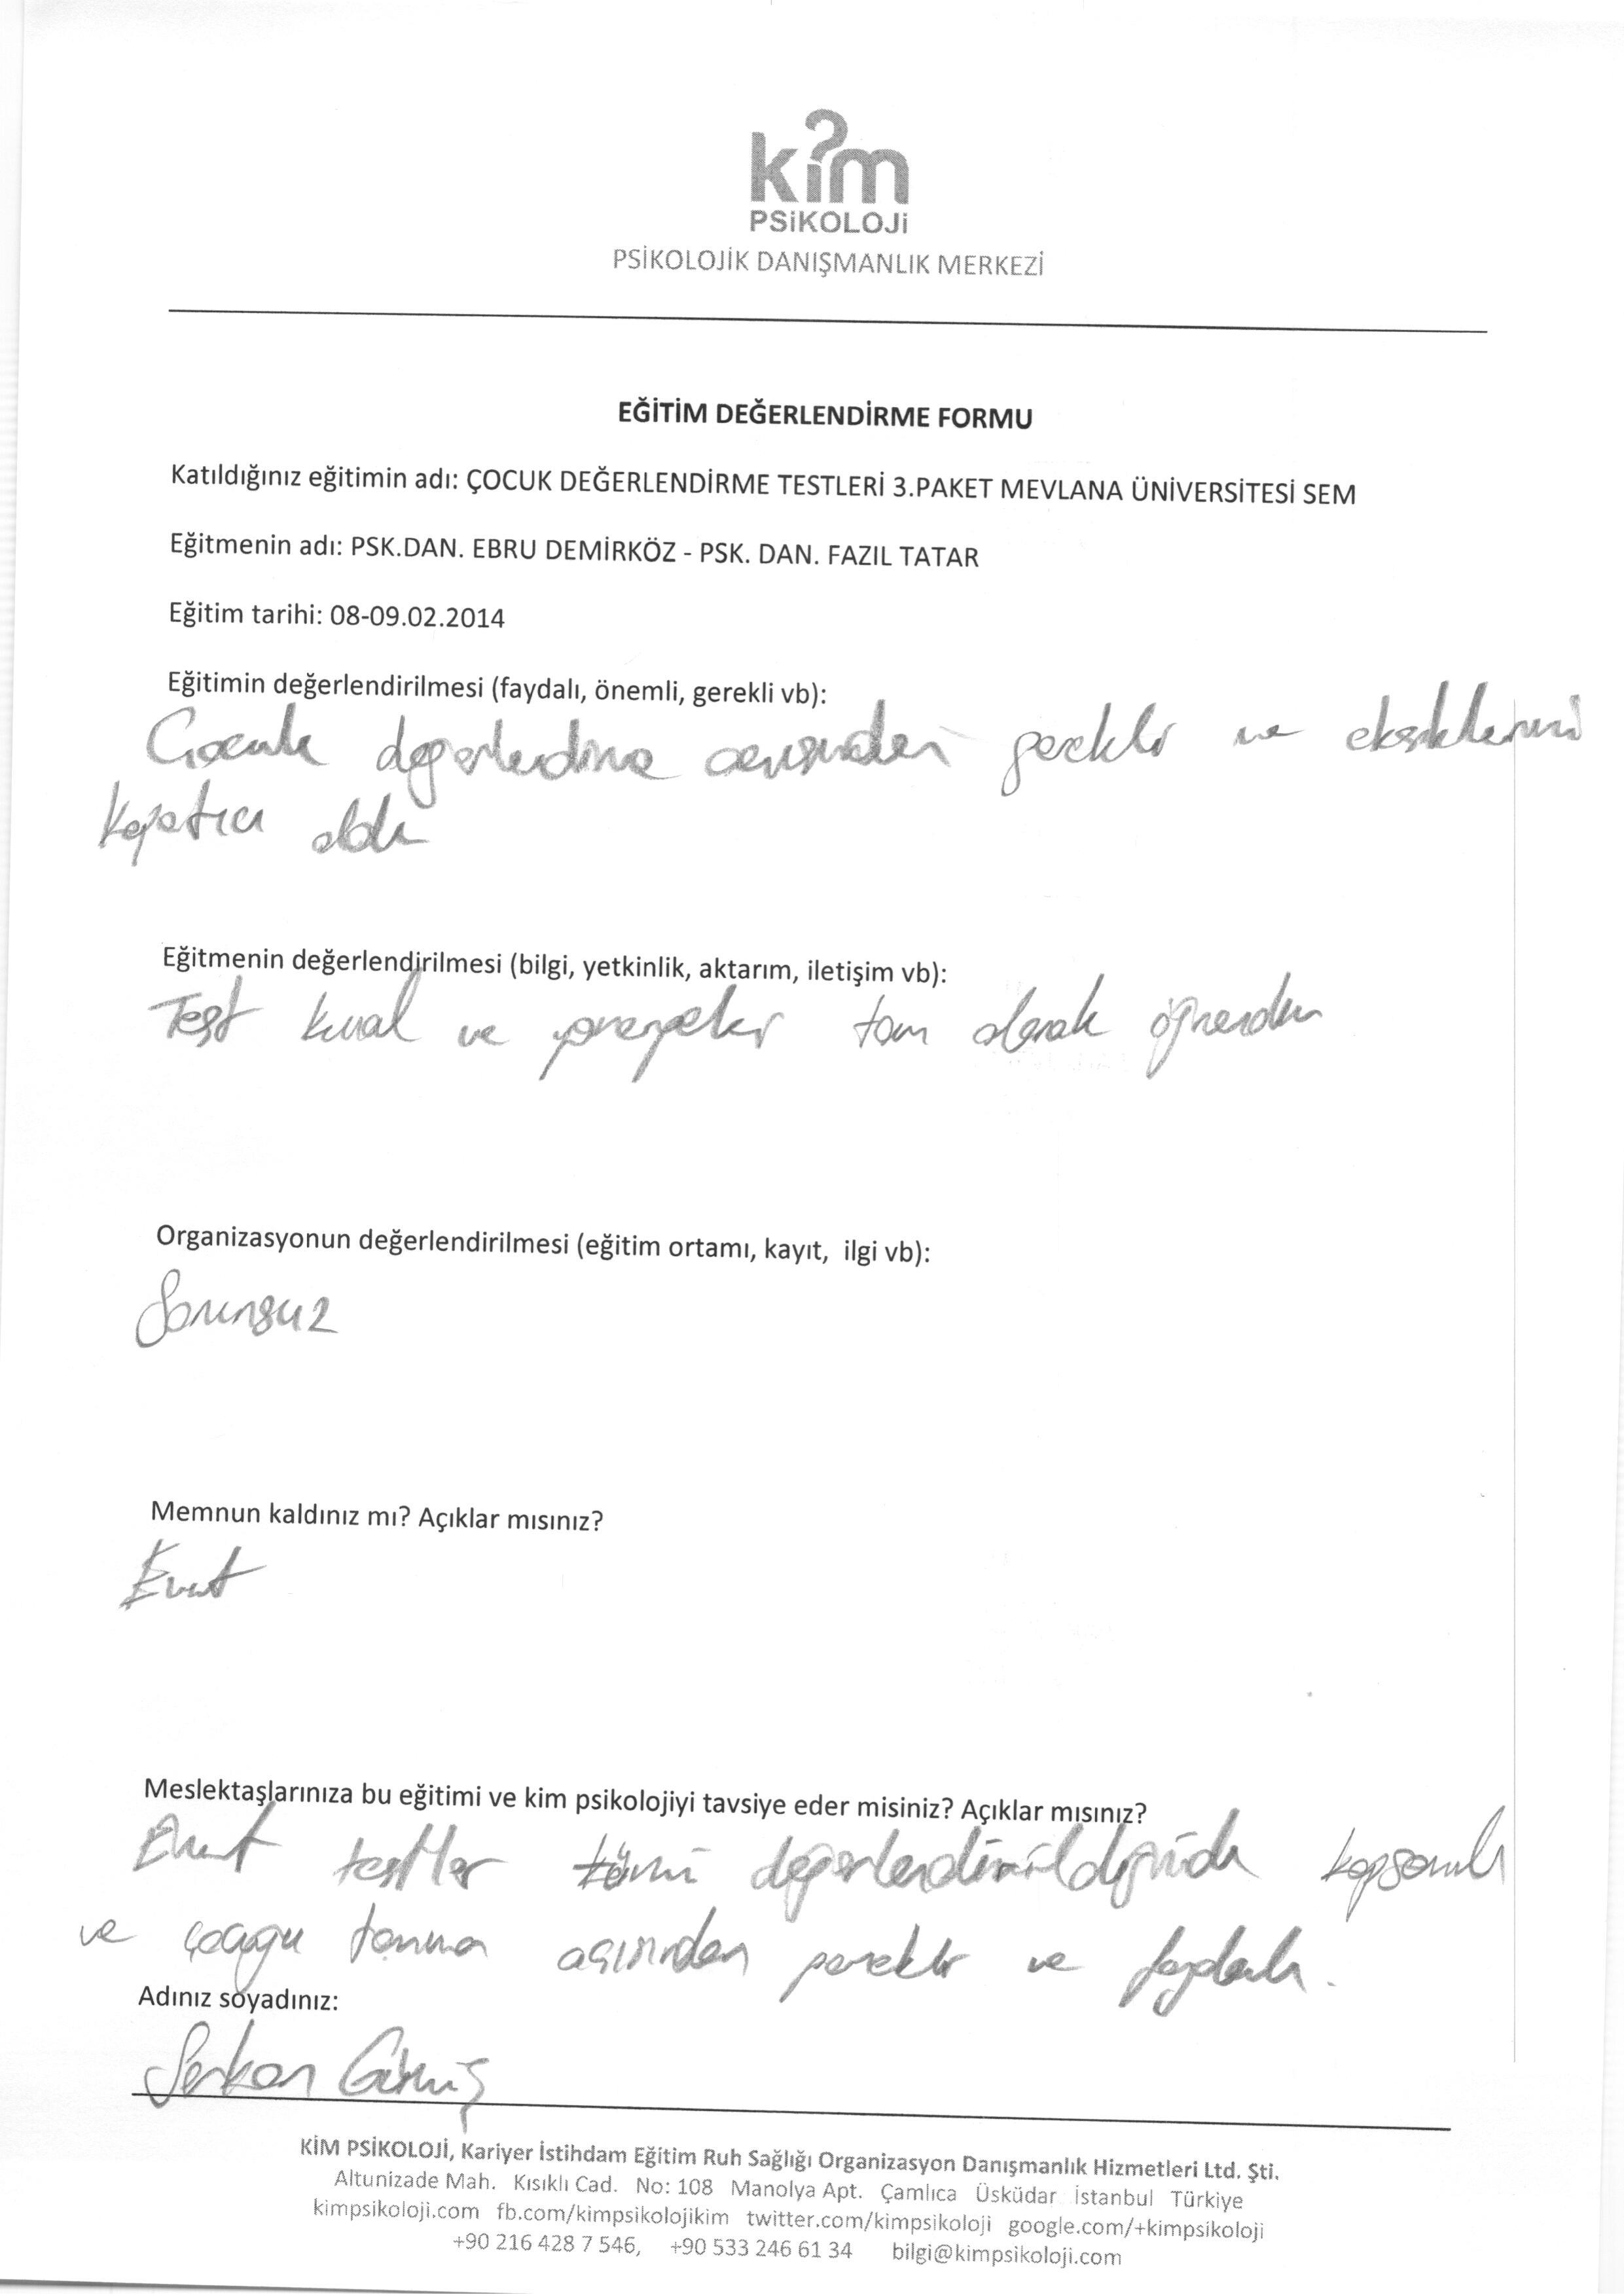 kim
PSiKOLOJi
PSİKOLOJİK DANIŞMANLIK MERKEZİ
EĞİTİM DEĞERLENDİRME FORMU
Katıldığınız eğitimin adı: ÇOCUK DEĞERLENDİRME TESTLERİ 3.PAKET MEVLANA ÜNİVERSİTESİ SEM
Eğitmenin adı: PSK.DAN. EBRU DEMİRKÖZ - PSK. DAN. FAZIL TATAR
Eğitim tarihi: 08-09.02.2014
Eğitimin değerlendirilmesi (faydalı, önemli, gerekli vb):
Çocuk değerlendirme açısından gerekli ve eksiklerimi
kapatıcı oldu
Eğitmenin değerlendirilmesi (bilgi, yetkinlik, aktarım, iletişim vb):
Test kural ve tam olarak öğrendim
Organizasyonun değerlendirilmesi (eğitim ortamı, kayıt, ilgi vb):
Sorunsuz
Memnun kaldınız mı? Açıklar mısınız?
Evet
Meslektaşlarınıza bu eğitimi ve kim psikolojiyi tavsiye eder misiniz? Açıklar mısınız?
Evet testler tümü değerlendirildiğinde kapsamlı
ve çocuğu tanıma açısından gerekli ve faydalı.
Adınız soyadınız:
Serkan Gümüş
KİM PSİKOLOJİ, Kariyer İstihdam Eğitim Ruh Sağlığı Organizasyon Danışmanlık Hizmetleri Ltd. Şti.
Altunizade Mah. Kısıklı Cad. No: 108 Manolya Apt. Çamlıca Üsküdar İstanbul Türkiye
kimpsikoloji.com fb.com/kimpsikolojikim twitter.com/kimpsikoloji google.com/+kimpsikoloji
+90 216 428 7 546, +90 533 246 61 34 bilgi@kimpsikoloji.com